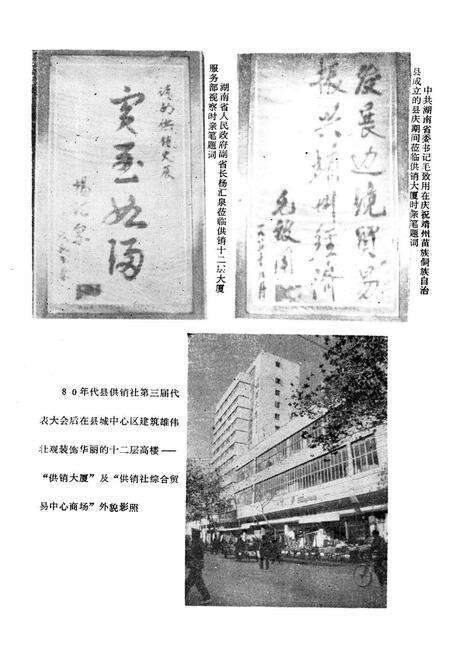 发展边境贸易
振兴靖州经济
毛致用
中共湖南省委书记毛致用在庆祝靖州苗族侗族自治
县成立的县庆期间莅临供销大厦时亲笔题词
宾至如归
杨汇泉
湖南省人民政府副省长杨汇泉莅临供销十二层大厦
服务部视察时亲笔题词
80年代县供销社第三届代
表大会后在县城中心区建筑雄伟
壮观装饰华丽的十二层高楼——
“供销大厦”及“供销社综合贸
易中心商场”外貌影照